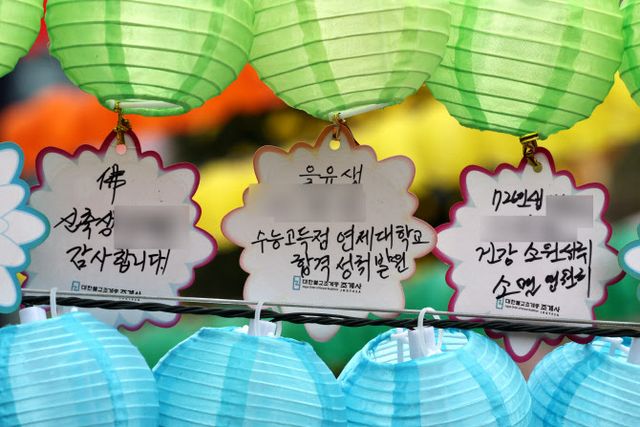 佛
신축생
감사합니다
대한불교조계종 조계사
을유생
수능고득점 연세대학교
합격 성취발원
대한불교조계종 조계사
72인생
건강 소원성취
소멸
대한불교조계종 조계사